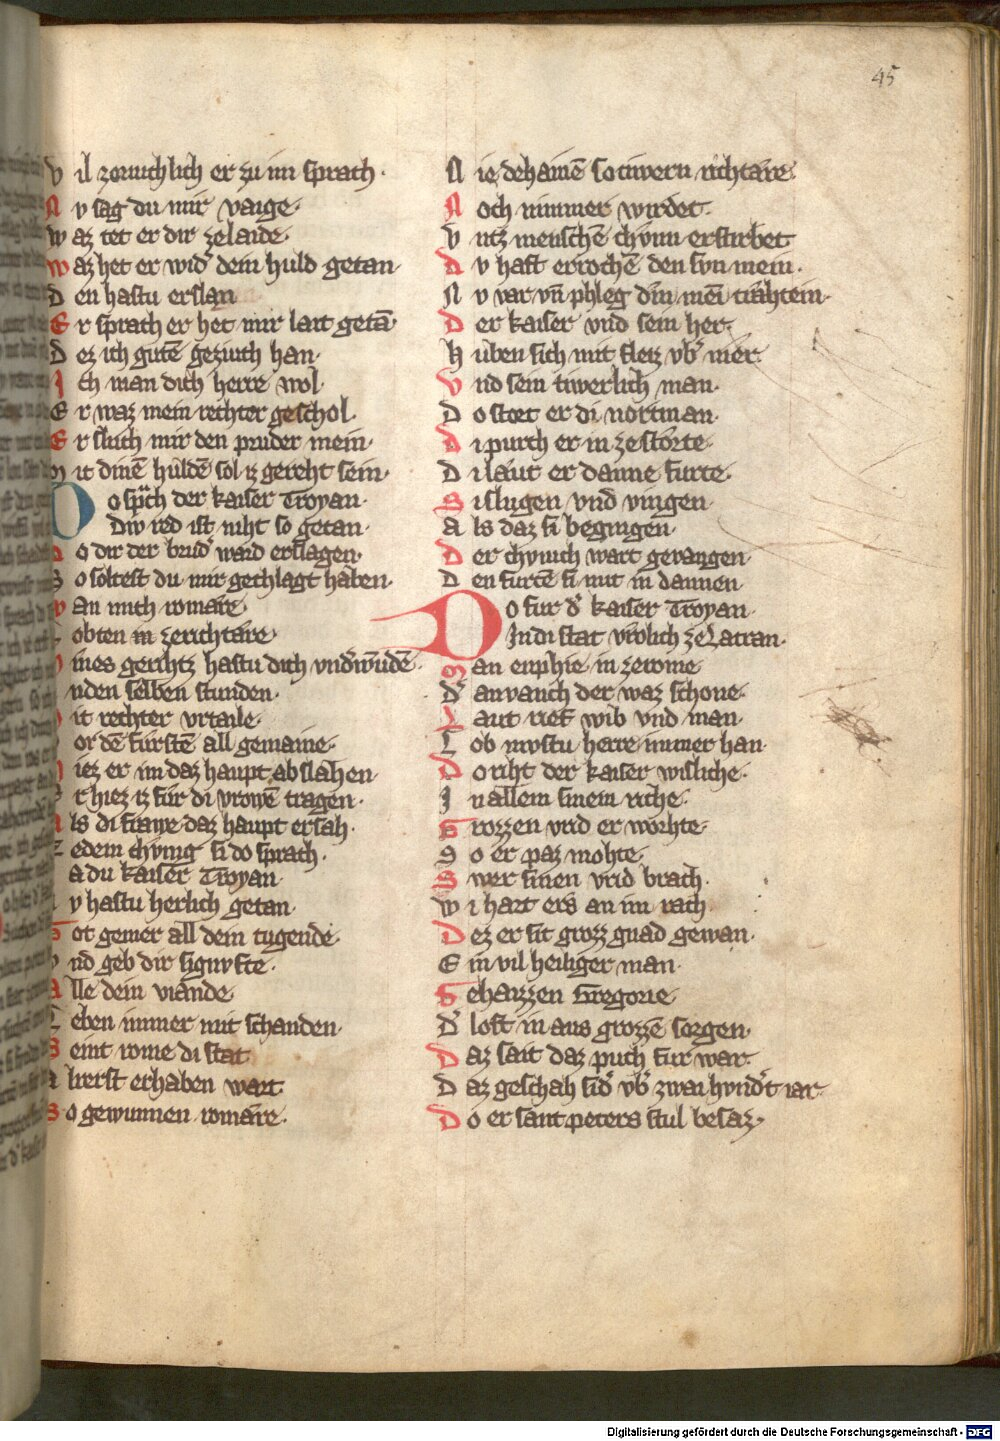 45
V il zornichlich er zu im sprach·
N v sag du mir vaige·
W az tet er dir zelaide·
W az het er wid' dem huld getan·
D en hastu erslan
E r sprach er het mir lait getā·
D ez ich gutē geziuch han·
I ch man dich herre wol·
E r waz mein rechter geschol·
E r sluch mir den pruder mein·
M it dinē huldē sol iz gereht sein·
D o sp̄ch der kaiser Troyan·
Diw red ist niht so getan·
D o dir der brud' ward erslagen·
S o soltest du mir gechlagt haben·
W an mich romǎre·
L obten in zerichtǎre·
D ines gerihtz hastu dich vnd'wūdē·
nden selben stunden·
M it rechter vrtaile·
V or dē fürstē all gemaine·
H iez er im daz haupt abslahen·
E r hiez iz für di vrowē tragen·
A ls di frawe daz haupt ersah·
Z edem chvnig si do sprach·
a du kaiser Troyan·
v hastu herlich getan·
G ot gemer all dein tugende·
V nd geb dir signvfte·
A lle dein viande·
L eben immer mit schanden·
S eint rome di stat
A lrerst erhaben wart
S o gewunnen romǎre·
N ie dehainē so tiwern richtǎre·
N och nimmer wirdet·
V ntz menschē chvnn erstirbet
D v hast errochē den svn mein·
N v var vn̄ phleg d'in mēi trǎhtein·
D er kaiser vnd sein her·
H üben sich mit fleiz vb' mer·
V nd sein tiwerlich man·
D o stort er di nortman·
D i purch er in zestorte·
D i lǎut er danne furte·
S i slugen vnd viengen·
A ls daz si begingen·
D er chvnich wart gevangen·
D en furtē si mit in dannen·
D o fur d' kaiser Troyan·
Indi stat vrolich ze Latran·
M an enphie in zerome·
D' anvanch der waz schone·
L aut rief wib vnd man·
L ob mvstu herre immer han·
D o riht der kaiser wisliche·
I n allem sinem riche·
G rozzen vrid er worhte·
S o er paz mohte·
S wer sinen vrid brach·
W i hart ers an im rach·
D ez er sit grozz gnad gewan·
E in vil heiliger man·
G ehaizzen Gregorie·
D' lost in aus grozzē sorgen·
D az sait daz puch fur war·
D az geschah sid' vb' zwai hvnd't iar·
D o er sant peters stul besaz·
Digitalisierung gefördert durch die Deutsche Forschungsgemeinschaft - DFG